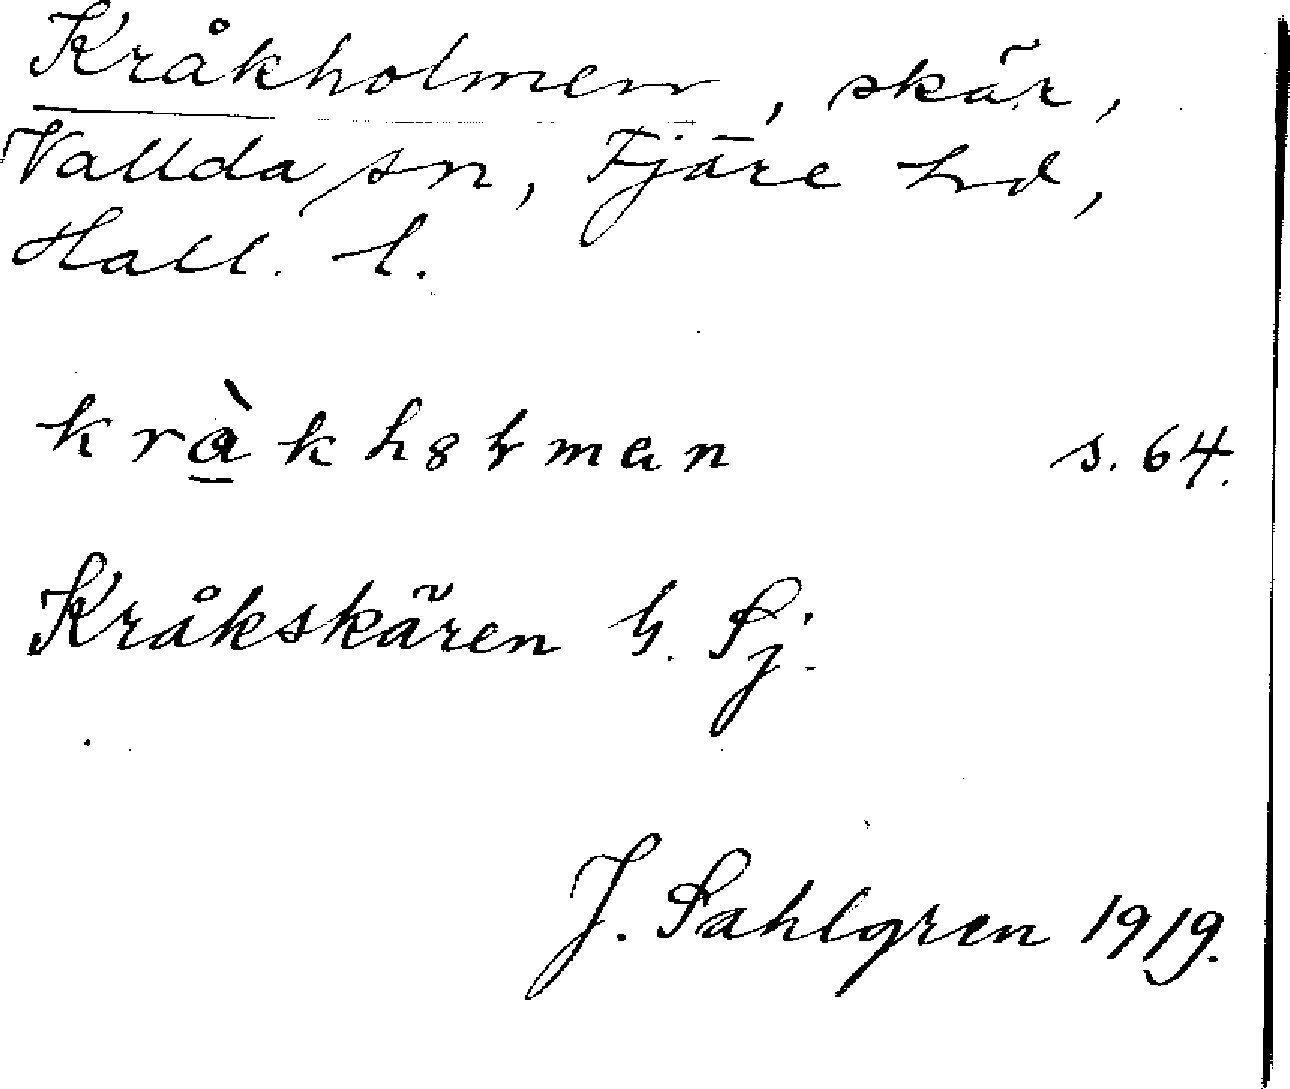 Kråkholmen, skär,
Vallda sn, Fjäre hd,
Hall. l.
kràkhȣlmen s. 64.
Kråkskären Sj.
J. Sahlgren 1919.